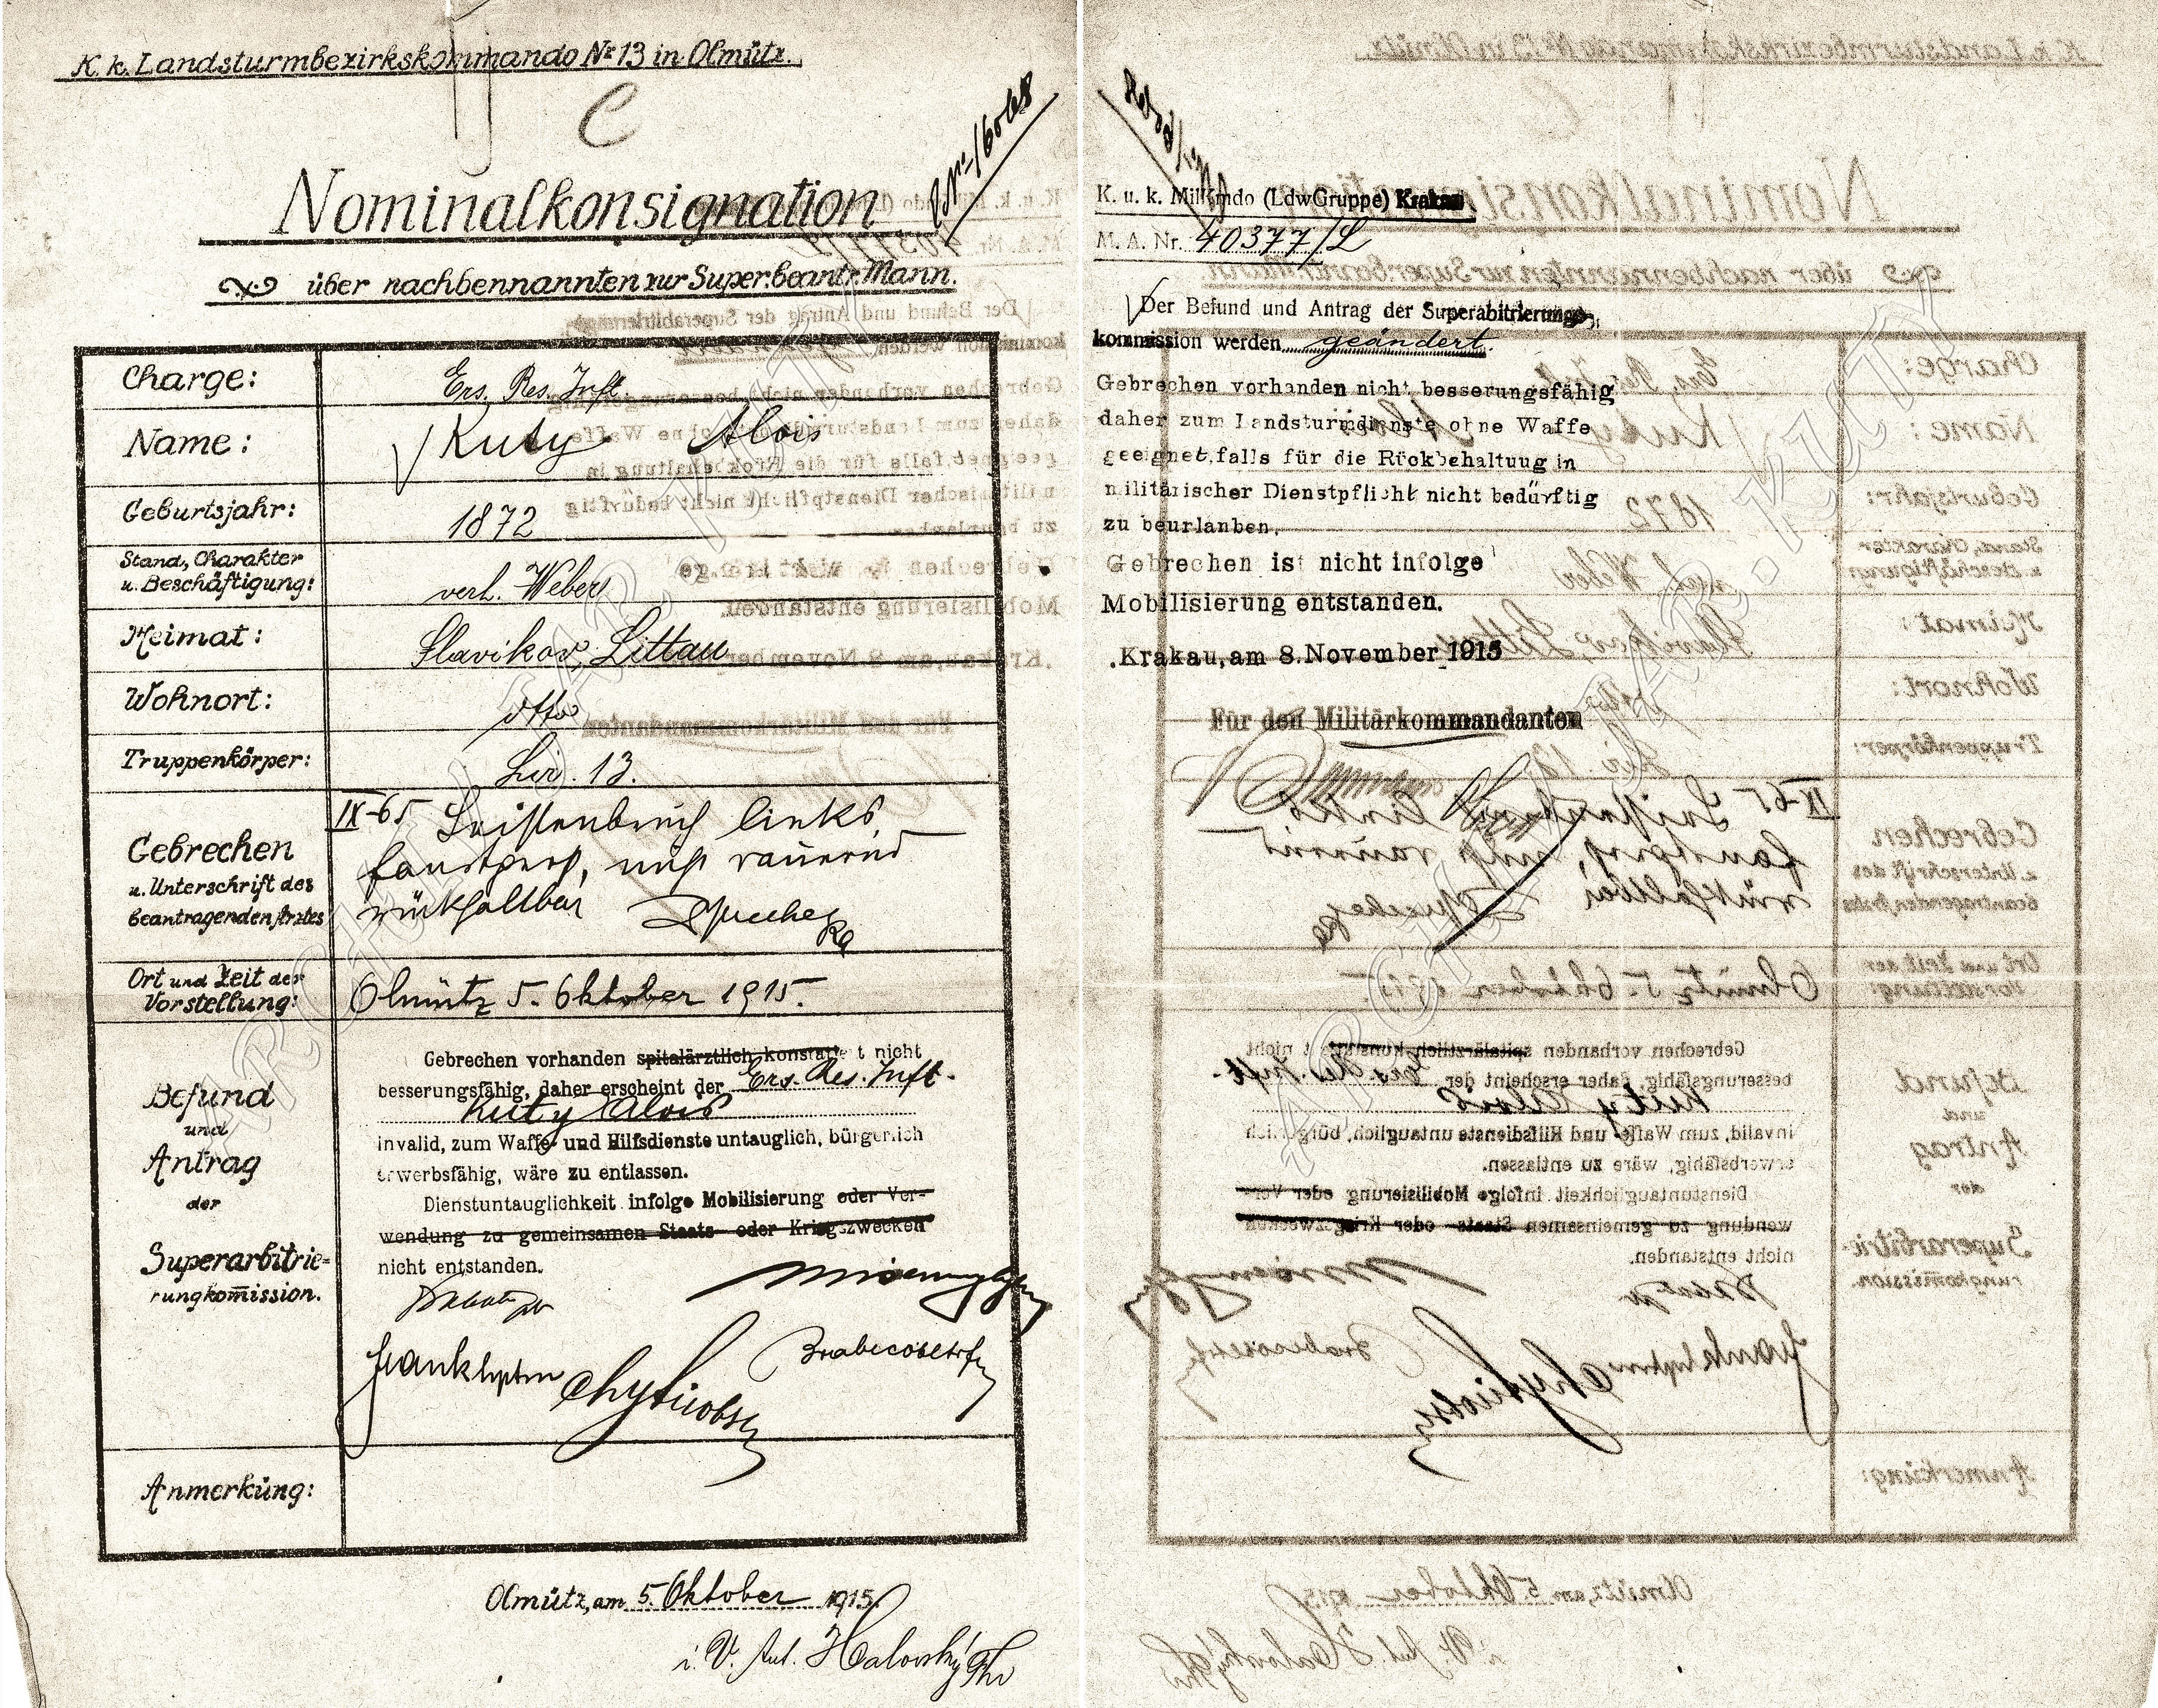 K. k. Landsturmbezirkskommando Nr 13 in Olmütz.
C
Nominalkonsignation
über nachbennannten zur Super.beantr. Mann.
Charge: Ers. Res. Inft.
Name: Kuty Alois
Geburtsjahr: 1872
Stand, Charakter
u. Beschäftigung: verh. Weber
Heimat: Slavikov, Littau
Wohnort: dtto
Truppenkörper: Lir. 13.
Gebrechen
u. Unterschrift des
beantragenden Arztes
IX-65 Leistenbruch links,
faustgross, nicht dauernd
rückhaltbar
Ort und Zeit der
Vorstellung: Olmütz 5. Oktober 1915.
Befund
und
Antrag
der
Superarbitrie=
rungkom̅ission.
Gebrechen vorhanden spitalärztlich konstatiert nicht
besserungsfähig, daher erscheint der Ers. Res. Inft.
Kuty Alois
invalid, zum Waffe- und Hilfsdienste untauglich, bürgerlich
erwerbsfähig, wäre zu entlassen.
Dienstuntauglichkeit infolge Mobilisierung oder Ver-
wendung zu gemeinsamen Staats- oder Kriegszwecken
nicht entstanden.
Anmerkung:
Olmütz, am 5. Oktober 1915.
i. V. Halovský
K. u. k. MilKmdo (LdwGruppe) Krakau
M. A. Nr. 40377/L
Der Befund und Antrag der Superabitrierungs-
kommission werden geändert.
Gebrechen vorhanden nicht besserungsfähig
daher zum Landsturmdienste ohne Waffe
geeignet, falls für die Rückbehaltuug in
militärischer Dienstpflicht nicht bedürftig
zu beurlanben.
Gebrechen ist nicht infolge
Mobilisierung entstanden.
Krakau, am 8. November 1915
Für den Militärkommandanten
ARCHIV JAR. KUTÝ
ARCHIV JAR. KUTÝ